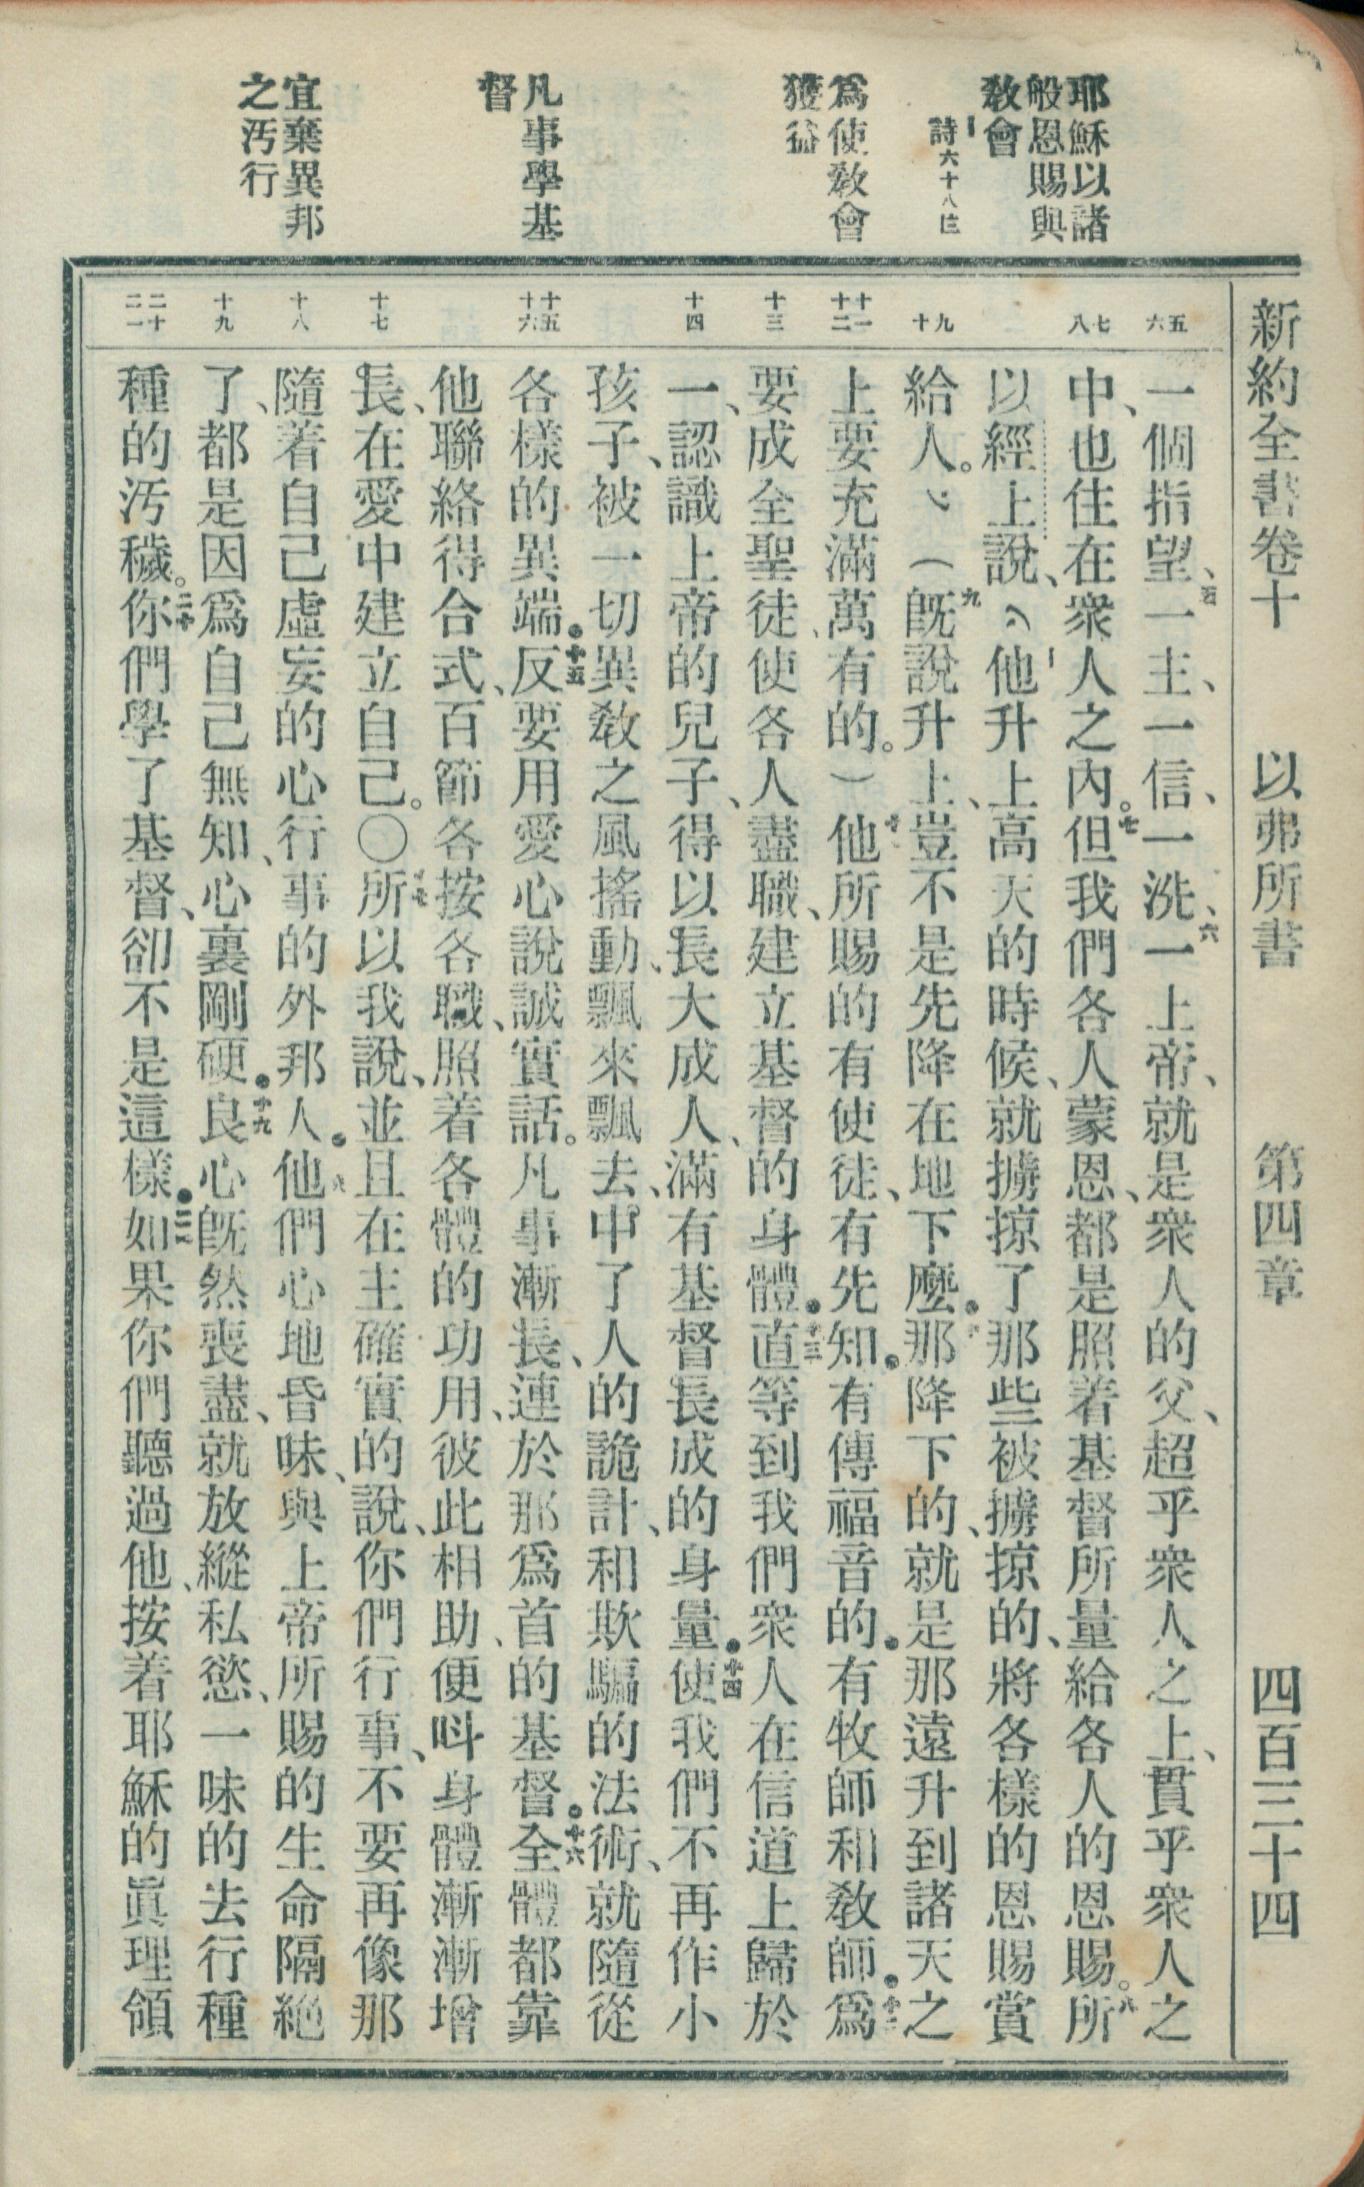 新約全書卷十　以弗所書　第四章　四百三十四
耶穌以諸
般恩賜與
教會
詩六十八
爲使教會
獲益
凡事學基
督
宜棄異邦
之汚行
五
六
七
八
九
十
十一
十二
十三
十四
十五
十六
十七
十八
十九
二十
二一
一個指望、五一主、一信、一洗、六一上帝、就是衆人的父、超乎衆人之上、貫乎衆人之
中、也住在衆人之內。七但我們各人蒙恩、都是照着基督所量給各人的恩賜。八所
以經上說、他升上高天的時候、就擄掠了那些被擄掠的、將各樣的恩賜賞
給人。（九旣說升上、豈不是先降在地下麼．十那降下的、就是那遠升到諸天之
上要充滿萬有的。）十一他所賜的有使徒、有先知．有傳福音的．有牧師和敎師．十二爲
要成全聖徒、使各人盡職、建立基督的身體．十三直等到我們衆人在信道上歸於
一、認識上帝的兒子、得以長大成人、滿有基督長成的身量．十四使我們不再作小
孩子、被一切異敎之風搖動、飄來飄去、中了人的詭計、和欺騙的法術、就隨從
各樣的異端．十五反要用愛心說誠實話。凡事漸長、連於那爲首的基督．十六全體都靠
他聯絡得合式、百節各按各職、照着各體的功用、彼此相助、便呌身體漸漸增
長、在愛中建立自己。〇十七所以我說、並且在主確實的說、你們行事、不要再像那
隨着自己虛妄的心行事的外邦人．十八他們心地昏昧、與上帝所賜的生命隔絕
了、都是因爲自己無知、心裏剛硬．十九良心旣然喪盡、就放縱私慾、一味的去行種
種的汚穢。二十你們學了基督、卻不是這樣．二一如果你們聽過他、按着耶穌的眞理領